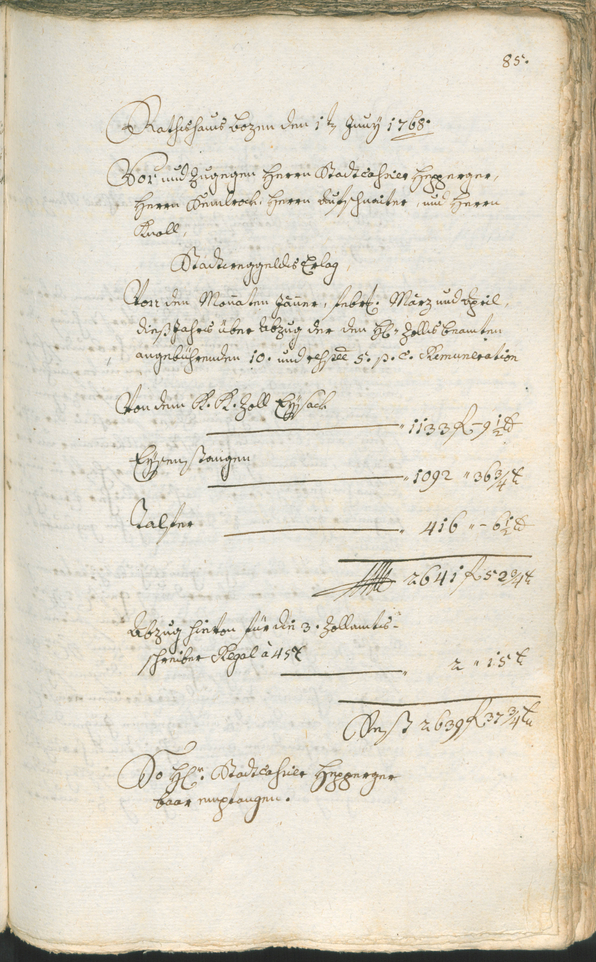 85.
Rathshaus Bozen den 17 Juny 1768.
Vor und zugegen Herrn Stadtcassier Hepperger,
Herrn Herrn Aufschnaiter, und Herrn
Knoll,
Stadtweggelds Erlag,
Von den Monaten Jäner, Febr. März und April,
dieß Jahrs über Abzug der den Hl. Zollsbeamten
angebührenden 10. und resp. 5. p. C. Remuneration
Von dem K. K. Zoll Eysack
" 1133 f - 9 1/2
Eyzenstangen
" 1092 " 36 3/4 x
Talfer
" 416 " - 6 1/2
2641 f 52 3/4 x
Abzug hievon für die 3. Zollamts-
schreiber Regal à 45 x
" 2 " 15 x
Rest 2639 f 37 3/4 x
So Hr. Stadtcassier Hepperger
baar empfangen.